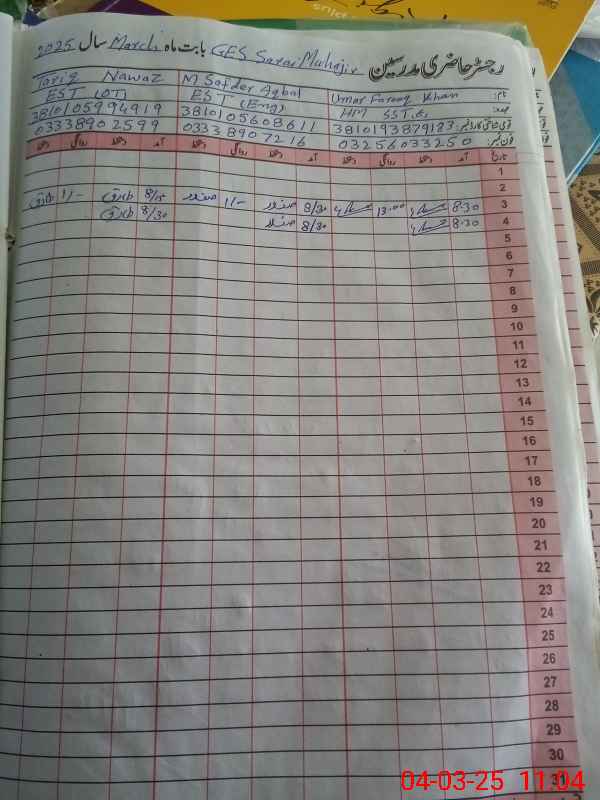 رجسٹر حاضری مدرسین GES Sarai Muhajir بابت ماہ March سال 2025
نام: Umar Farooq Khan M Safder Aqbal Tariq Nawaz
عہدہ: HM SST EST (Eng) EST (OT)
قومی شناختی کارڈ نمبر: 3810193879183 3810105608611 3810105994919
فون نمبر: 03256033250 03338907216 03338902599
تاریخ آمد دستخط روانگی دستخط آمد دستخط روانگی دستخط آمد دستخط روانگی دستخط
1
2
3 8.30 13.00 8/30 صفدر 1/- صفدر 8/15 طارق 1/- طارق
4 8.30 8/30 صفدر 8/30 طارق
5
6
7
8
9
10
11
12
13
14
15
16
17
18
19
20
21
22
23
24
25
26
27
28
29
30
31
04-03-25 11:04